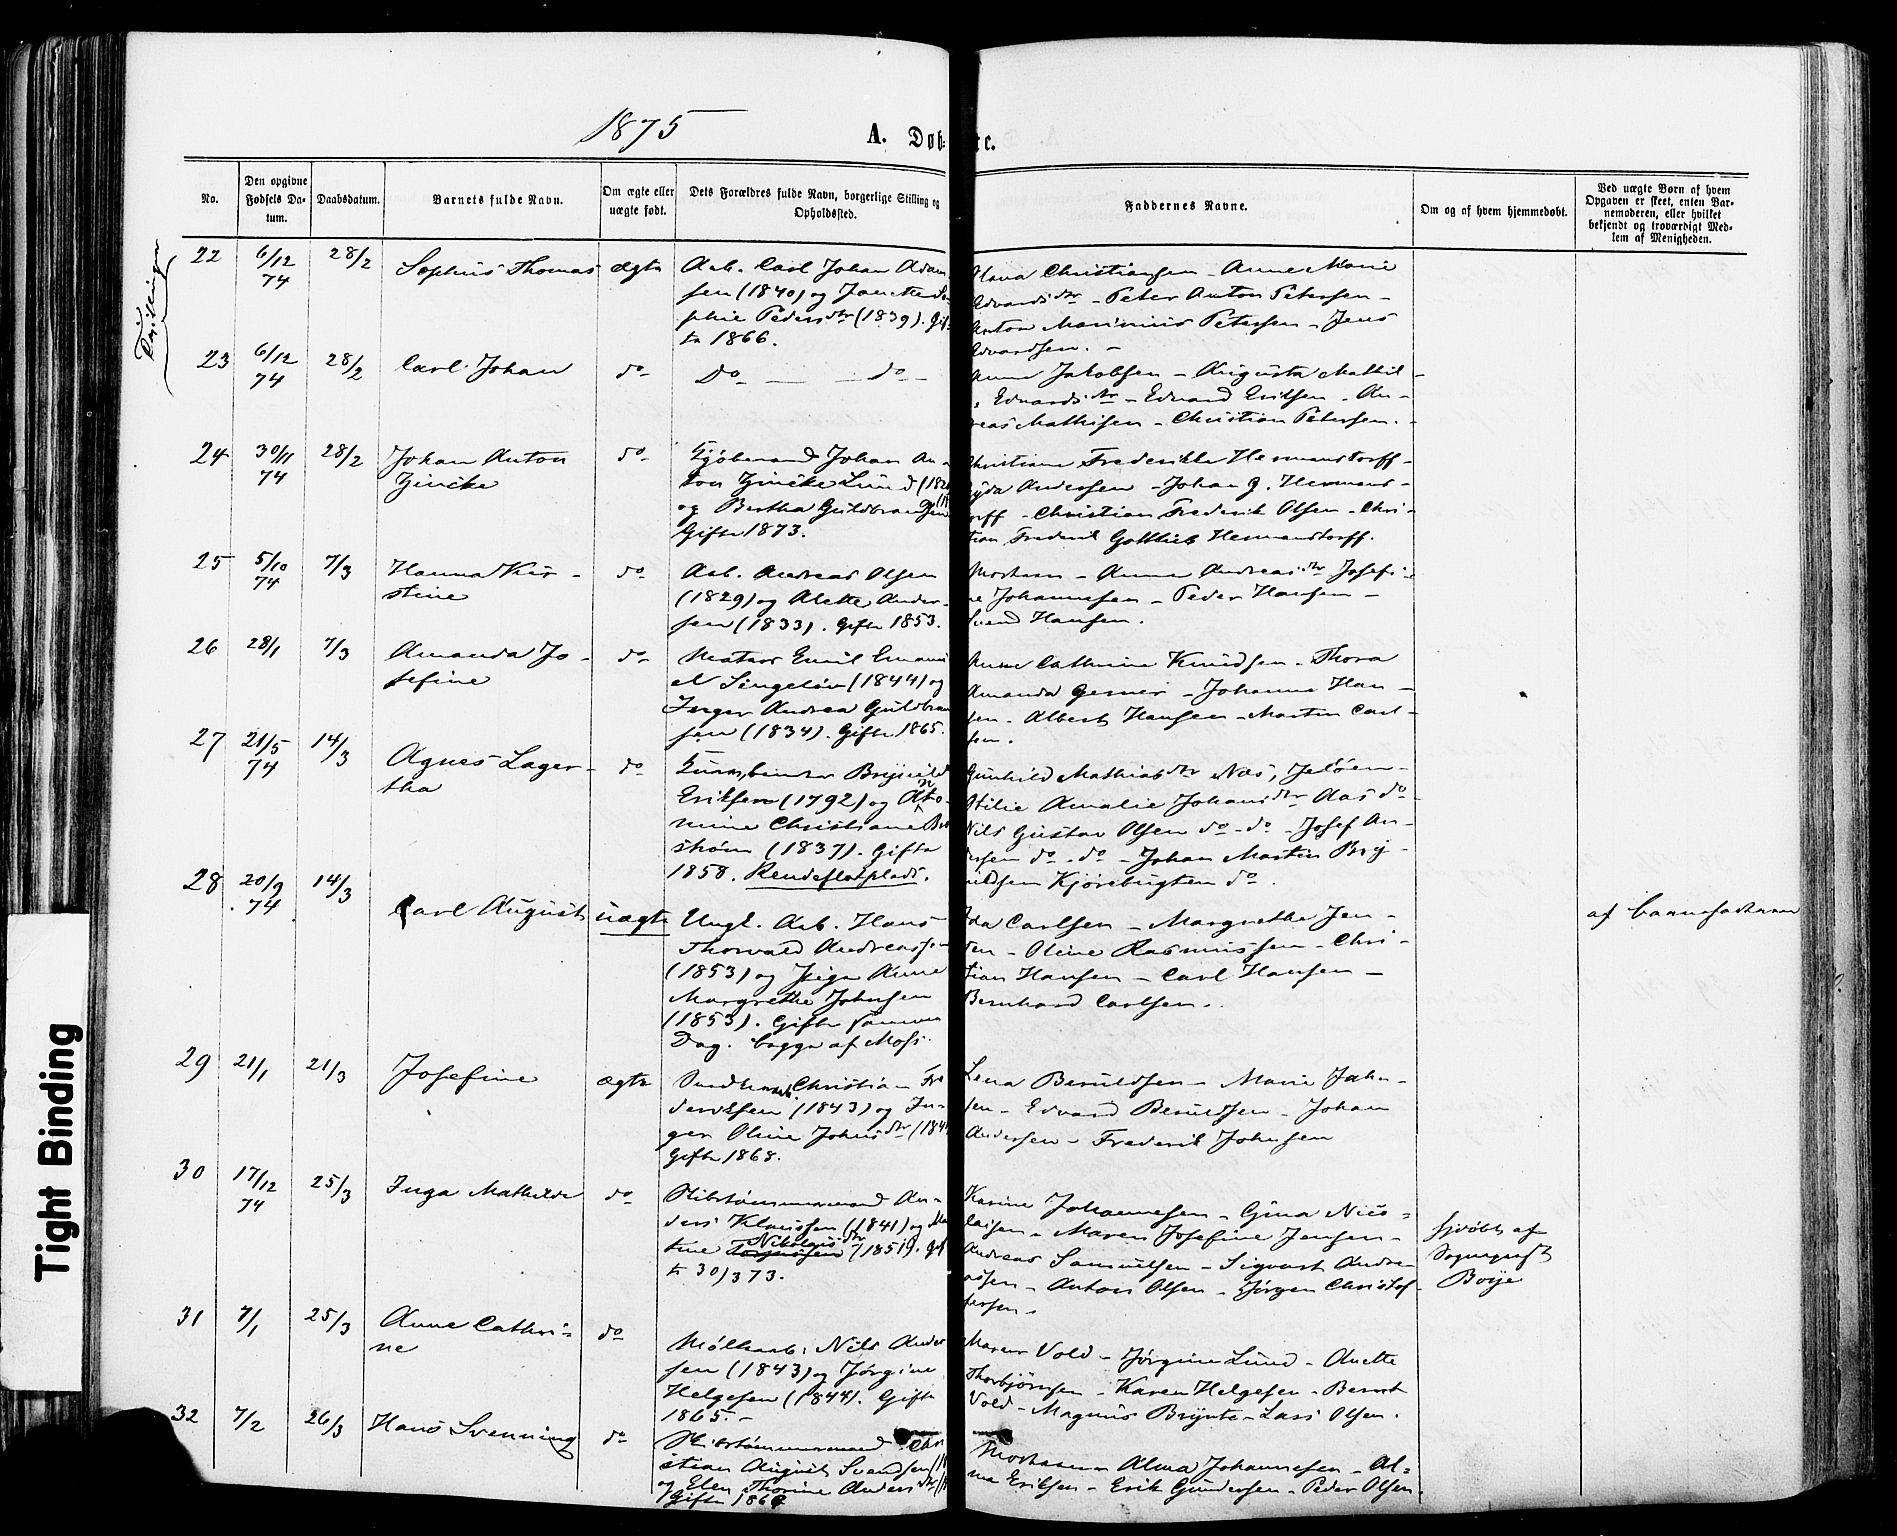 1875
A. Døb- te.
No.
Den opgivne Fødsels Da-tum.
Daabsdatum.
Barnets fulde Navn.
Om ægte eller uægte født.
Dets Forældres fulde Navn, borgerlige Stilling og Opholdssted.
Faddernes Navne.
Om og af hvem hjemmedøbt.
Ved uægte Børn af hvem Opgaven er skeet, enten Bar-nemoderen, eller hvilket bekjendt og troværdigt Med-lem af Menigheden.
Tvillinger
22 6/12 74 28/2 Sophus Thomas ægte
Arb. Carl Johan Adam-
sen (1840) og Janette So-
phie Pedersdtr (1839). Gif-
te 1866.
Hana Christiansen - Anne Marie
Edvardsdtr - Peter Anton Petersen -
Anton Marinius Petersen - Jens
Edvardsen. -
23 6/12 74 28/2 Carl Johan do
Do - - do -
Anna Jakobsen - Augusta Mathil-
Edvardsdtr - Edvard Eriksen - An-
reas Mathisen - Christian Petersen. -
24 30/11 74 28/2 Johan Anton
Gincke do
Kjøbmand Johan An-
ton Gincke Lund (182
og Bertha Guldbrandsen
Gifte 1873.
Christiane Frederikke Hermansdorff -
Andersen - Johan G. Hermans-
orff - Christian Frederik Olsen - Chri-
tian Frederik Gottlieb Hermansdorff.
25 5/10 74 7/3 Hanna Kir-
stine do
Arb. Andreas Olsen
(1829) og Alette Ander-
sen (1833). Gifte 1853.
Morhaen - Anna Andreasdtr Josefi-
ne Johannesen - Peder Hansen -
Svend Hansen.
26 28/1 7/3 Amanda Jo-
sefine do
Matros Emil Emanu
el Singeløv (1844) og
Inger Andrea Guldbran
sen (1834). Gifte 1865.
Anne Cathrine Knudsen - Thora
Amanda Gerner - Johanne Han-
sen - Albert Hansen - Martin Carl-
sen.
27 21/5 74 14/3 Agnes Lager-
tha do
Brynild
Eriksen (1792) og Anto-
mine Christiane
(1837). Gifte
1858. Rendeflodplads.
Gunhild Mathiasdtr Næs, Jeløen -
Otilie Amalie Johansdtr Aas do -
Nils Gustav Olsen do - do - Josef An-
dersen do - do - Johan Martin Bry-
nildsen Kjørebugten do.
28 20/9 74 14/3 Carl August uægte
Ungk. Arb. Hans
Thorvald Andreassen
(1853) og Pige Anne
Margrethe Johnsen
(1853). Gifte samme
Dag. begge af Moss.
Ida Carlsen - Margrethe Jen-
sen - Oline Rasmussen - Chri-
tian Hansen - Carl Hansen -
Bernhard Carlsen.
af barnefaderen
29 21/1 21/3 Josefine ægte
Christian Fre
deriksen (1843) og In-
ger Oline Johnsdtr (184
Gifte 1868.
Lena Beruldsen - Marie John-
sen - Edvard Beruldsen - Johan
Andersen - Frederik Johnsen
30 17/12 74 25/3 Inga Mathilde do
Skibstømmermand An-
ders Klausen (1841) og Ma
tine Nikolaisdtr (1851). Gif
te 30/3 73.
Karine Johannesen - Gina Nico-
laisen - Maren Josefine Jensen -
Andreas Samuelsen - Sigvart Andre-
assen - Anton Olsen - Jørgen Christof-
fersen -
hjdøbt af
Sogneprest
Borge
31 7/1 25/3 Anne Cathri-
ne do
Møllearb: Nils Ander
sen (1843) og Jørgine
Helgesen (1844). Gifte
1865. -
Maren Vold - Jørgine Lund - Anette
Thorbjørnsen - Karen Helgesen - Bernt
Vold - Magnus Brynte - Lars Olsen.
32 7/2 26/3 Hans Svenning do
Skibstømmermand Chri
stian August Svendsen
og Elen Thorine Andersdtr
Gifte 186
Morhaen - Alma Johannesen - Al-
ma Eriksen - Erik Gundersen - Peder Olsen.
Tight Binding